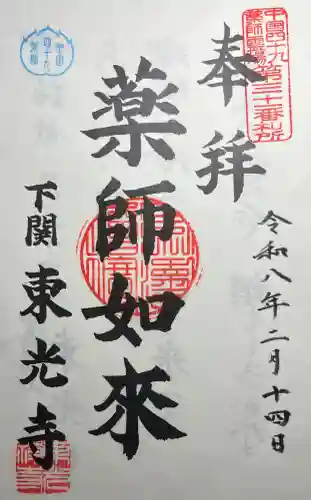 奉拝
中国四十九
薬師霊場第三十一番札所
令和八年二月十四日
薬師如來
下関
東光寺